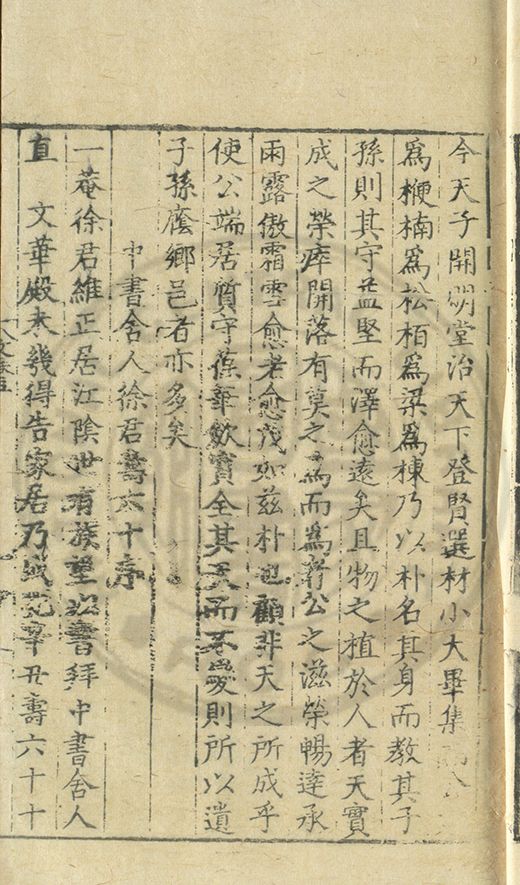 今天子開明堂治天下登賢選材小大畢集
為楩楠為松栢為梁為棟乃以朴名其身而教其子
孫則其守益堅而澤愈遠矣且物之植於人者天實
成之榮瘁開落有莫之為而為者公之滋榮暢達承
雨露傲霜雪愈老愈茂如茲朴也顧非天之所成乎
使公端居質守葆華歛實全其天而不受則所以遺
子孫廕鄉邑者亦多矣
中書舍人徐君壽六十序
一菴徐君維正居江陰世有族望以書拜中書舍人
直 文華殿未幾得告家居乃歲辛丑壽六十十